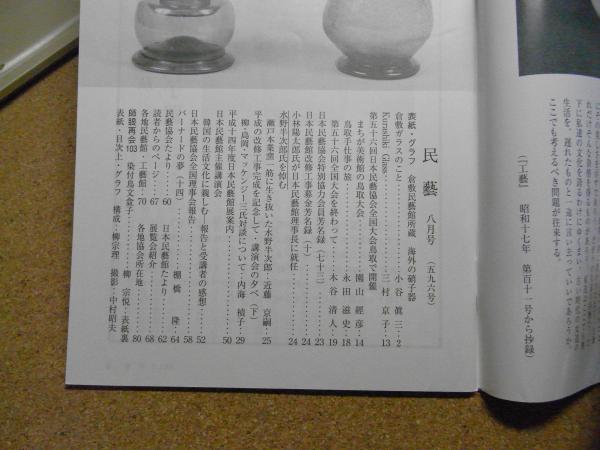 民藝 八月号 （五九六号）
表紙・グラフ 倉敷民藝館所蔵 海外の硝子器
倉敷ガラスのこと 小谷眞三 2
Kurashiki Glass 三村京子 13
第五十六回日本民藝協会全国大会鳥取で開催
まちが美術館の鳥取大会 園山經彦 14
鳥取手仕事の旅 永田滋史 18
第五十六回全国大会を終わって 木谷清人 19
日本民藝協会特別協力会員芳名録（七十三） 23
日本民藝館改修工事募金芳名録（十） 24
小林陽太郎氏が日本民藝館理事長に就任 24
水野半次郎氏を悼む
瀬戸本業窯一筋に生き抜いた水野半次郎 近藤京嗣 25
平成の改修工事完成を記念して・講演会の夕べ（下）
柳・島岡・マッケンジー三氏対談について 内海禎子 29
平成十四年度日本民藝館展案内 50
日本民藝館主催講演会
韓国の生活文化に親しむ 報告と受講者の感想 52
日本民藝協会全国理事会報告 58
バーナードの夢（十四） 棚橋隆 64
民藝協会たより 60 日本民藝館たより 62
読者からのページ 67 展覧会紹介 68
各地民藝館・工藝館 70 各地協会所在地 80
師弟再会103 染付鳥文盒子 柳宗悦 表紙裏
表紙・目次上・グラフ 構成・柳宗理 撮影・中村昭夫
下に私達の文化を誇るわけにゆかない
生活を、遅れたものと一途に言い立っていいであらうか。
ここでも考えるべき問題が往来する。
（「工藝」 昭和十七年 第百十一号から抄録）